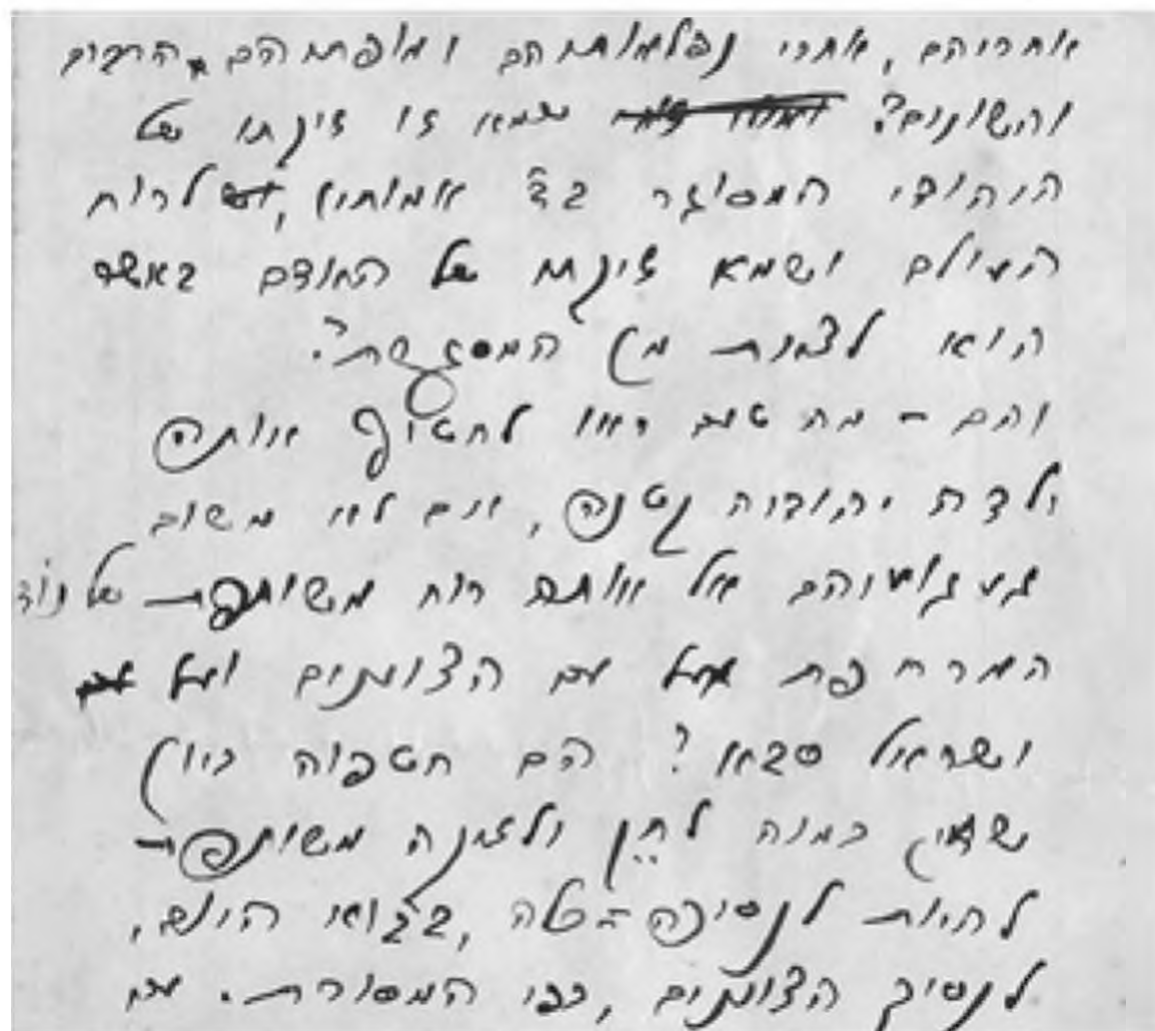 אחריהם, אחרי נפלאותיהם ומופתיהם הרבים
והשונים? שמא זו זיקתו של
היהודי המסוגר בד׳ אמותיו, לרוח
העולם ושמא זיקת של האדם באשר
הוא לצאת מן המסגרת?
והם – מה טעם ראו לחטוף אותה
ילדה יהודיה קטנה, אם לא משום
געגועיהם אל אותה רוח משותפת של נוד
המרחפת על עם הצוענים ועל
ישראל סבא? הם חטפוה כיון
שאין כמוה לחן ולזמרה משותפת
להיות לנסיכה-כלה, בבוא היום,
לנסיך הצוענים, כפי המסורת. עם